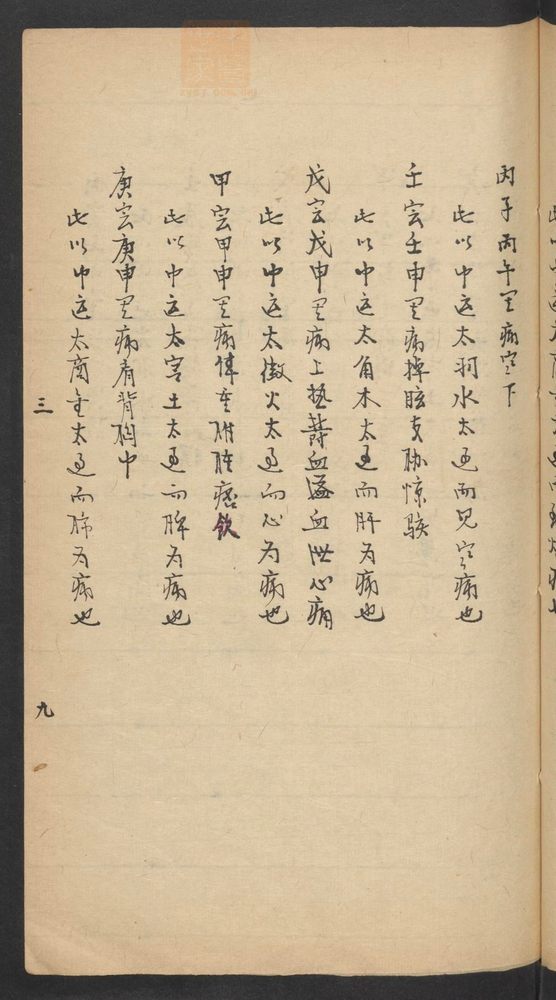 丙子丙午其病寒下
此以中运太羽水太过而见寒病也
壬寅壬申其病掉眩支胁惊骇
此以中运太角木太过而肝为病也
戊寅戊申其病上热郁血溢血泄心痛
此以中运太徵火太过而心为病也
甲寅甲申其病体重胕肿痞飲
此以中运太宫土太过而脾为病也
庚寅庚申其病肩背胸中
此以中运太商金太过而肺为病也
三
九